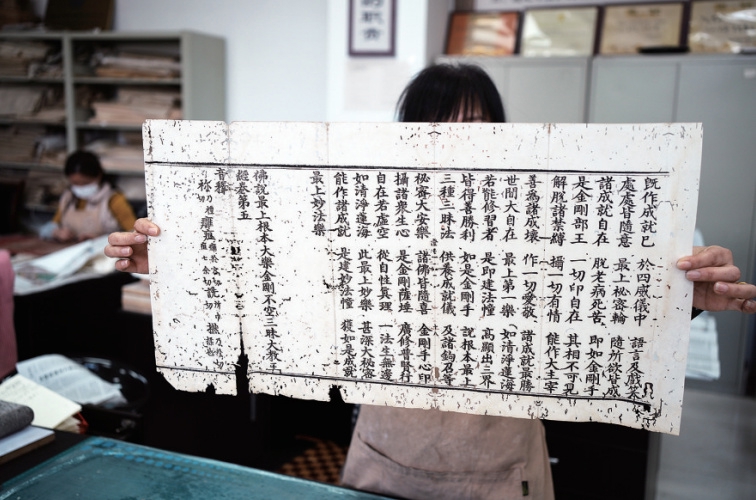 既作成就已 於四威儀中 語言及戲笑
處處皆隨意 最上秘密輪 隨所欲皆成
諸成就自在 脫老病死苦 即如金剛手
是金剛部王 一切印自在 其相不可見
解脫諸禁縛 攝一切有情 能作大主宰
善為諸成 作一切愛敬 諸成就最勝
世間大自在 最上第一樂 如清淨蓮海
若能修習者 是即建法幢 高顯出三界
皆得善勝利 如是金剛手 說根本最上
三種三昧法 供養成就儀 及諸鈎召等
秘密大安樂 諸佛皆隨喜 金剛手心印
攝諸衆生心 是金剛薩埵 廣修普賢行
自在若虛空 從自性真理 一法生無邊
如清淨蓮海 此最上妙樂 甚深大秘密
能作諸成就 是建妙法幢 獲如是最
最上妙法樂
佛說最上根本大樂金剛不空三昧大教王
經卷第五
音釋